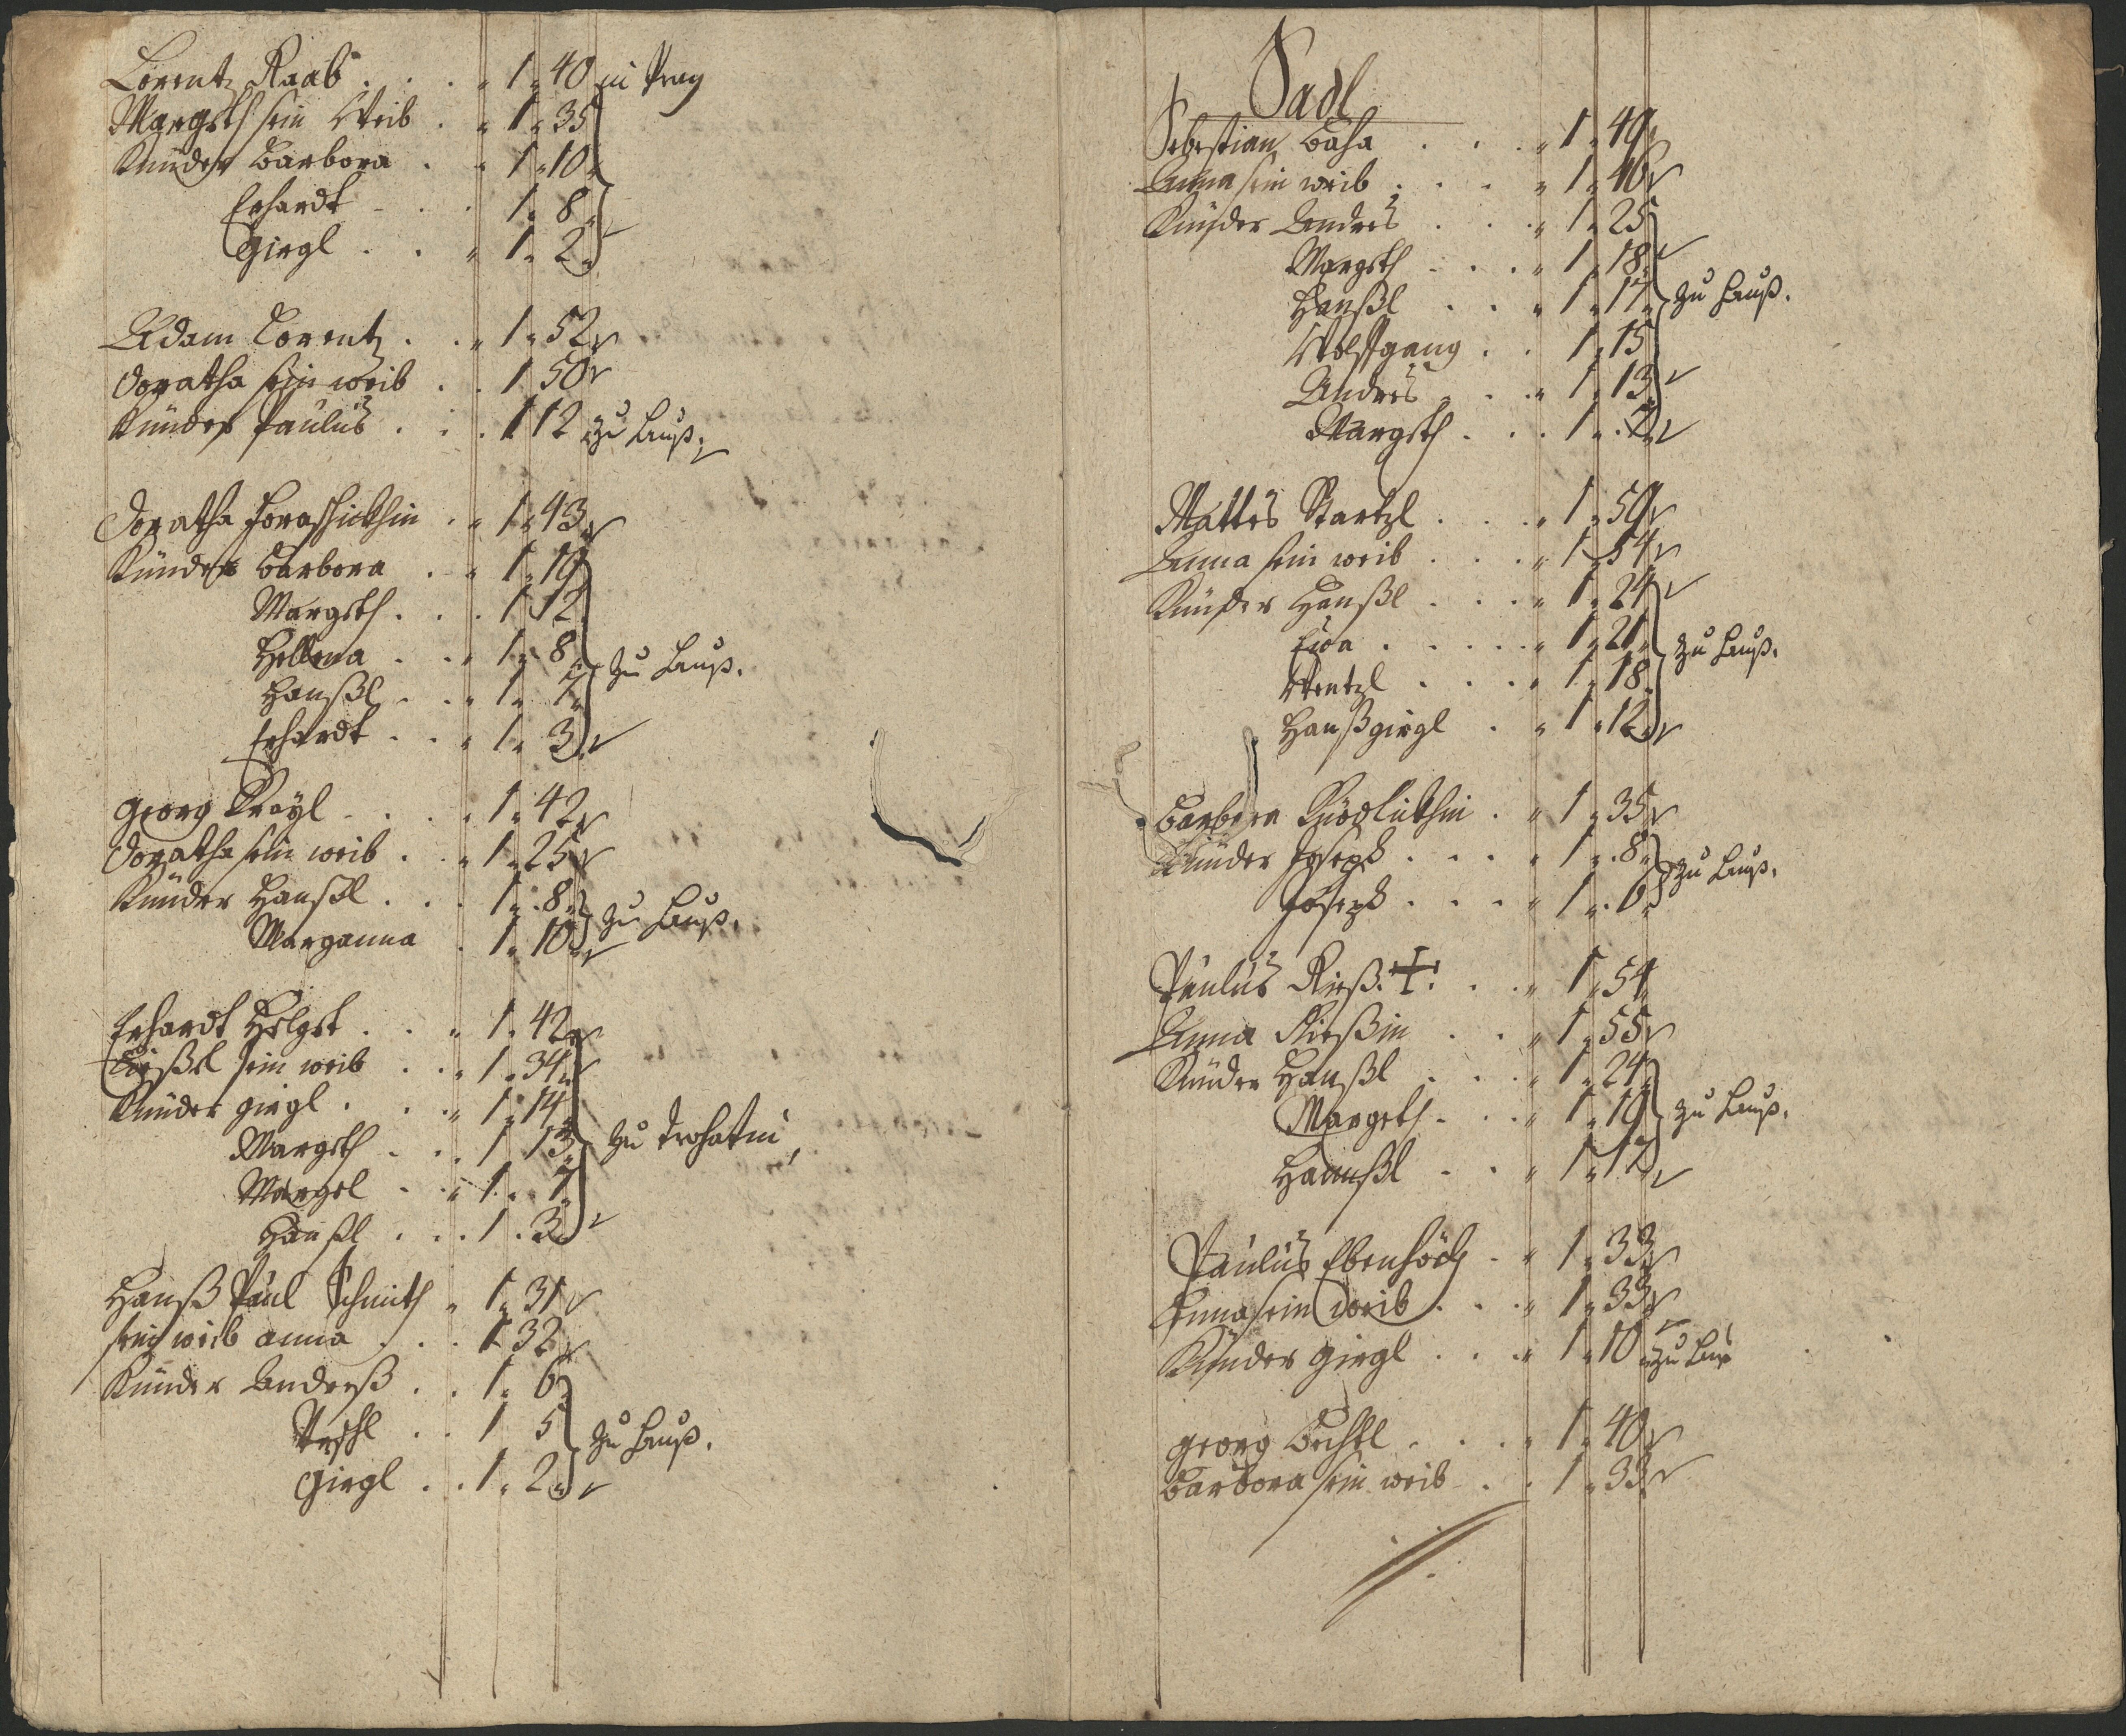 Lorentz Raab . . . 1 " 40 in Prag
Margeth sein Weib . " 1 " 35
Künder Barbora . " 1 " 10
Erhardt . . . 1 " 8
Girgl . . " 1 " 2
Adam Lorentz . . " 1 " 52
Doratha sein weib . . 1 50
Künder Paulus . . . 1 12 zu Hauß.
Doratha . " 1 " 43
Künder Barbora . " 1 " 19
Margeth . . . 1 12
Hellena . . " 1 " 8 zu Hauß.
Hanßl . . " 1 " 7
Erhardt . . " 1 " 3
Georg Kreyl . . . 1 " 42
Doratha sein weib . . " 1 " 25
Künder Hanßl . . . 1 " 8
Marganna . 1 " 10 zu Hauß.
Erhardt . . " 1 " 42
sein weib . . " 1 " 34
Künder Girgl . . " 1 " 14
Margeth . . . 1 13 zu
Margel . . " 1 " 7
Hanßl . . . 1 . 3
Hanß Paul Schmith " 1 " 31
sein weib Anna . . . 1 32
Künder Anderß . . 1 " 6
. . 1 5 zu Hauß.
Girgl . . 1 " 2
Sadl
Sebestian . . . " 1 " 49
Anna sein weib . . . " 1 " 46
Künder Andres . . . " 1 " 25
Margeth . . . " 1 " 18
Hanßl . . " 1 " 17 zu Hauß.
Wolfgang . . 1 " 15
Andres . . . " 1 " 13
Margeth . . . 1 " 7
Mattes Startzl . . . " 1 " 59
Anna sein weib . . . " 1 " 54
Künder Hanßl . . . " 1 " 24
Eva . . . . . " 1 " 21 zu Hauß.
Wentzl . . . " 1 " 18
Hanßgirgl . " 1 " 12
Barbora . " 1 " 35
Künder Joseph . . . " 1 " 8 zu Hauß.
Joseph . . . " 1 " 6
Paulus Rieß. + . . . " 1 " 54
Anna Rießin . . " 1 " 55
Künder Hanßl . . . " 1 " 24
Margeth . . . " 1 " 19 zu Hauß.
Hannßl . . " 1 " 17
Paulus Ebenhöch . " 1 " 33
Anna sein weib . . . " 1 " 33
Künder Girgl . . . " 1 " 10 zu Hauß
Georg Bechtl . . . " 1 " 40
Barbora sein weib . . 1 " 33